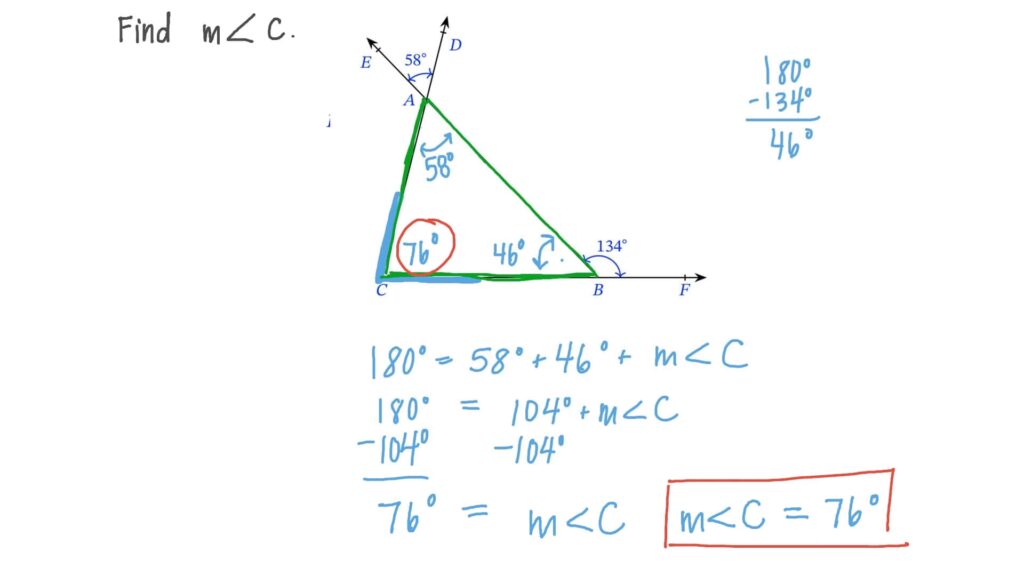 Find m∠C.
D
E
58°
A
180°
-134°
46°
58°
76°
46°
134°
C
B
F
180° = 58° + 46° + m∠C
180° = 104° + m∠C
-104° -104°
76° = m∠C
m∠C = 76°